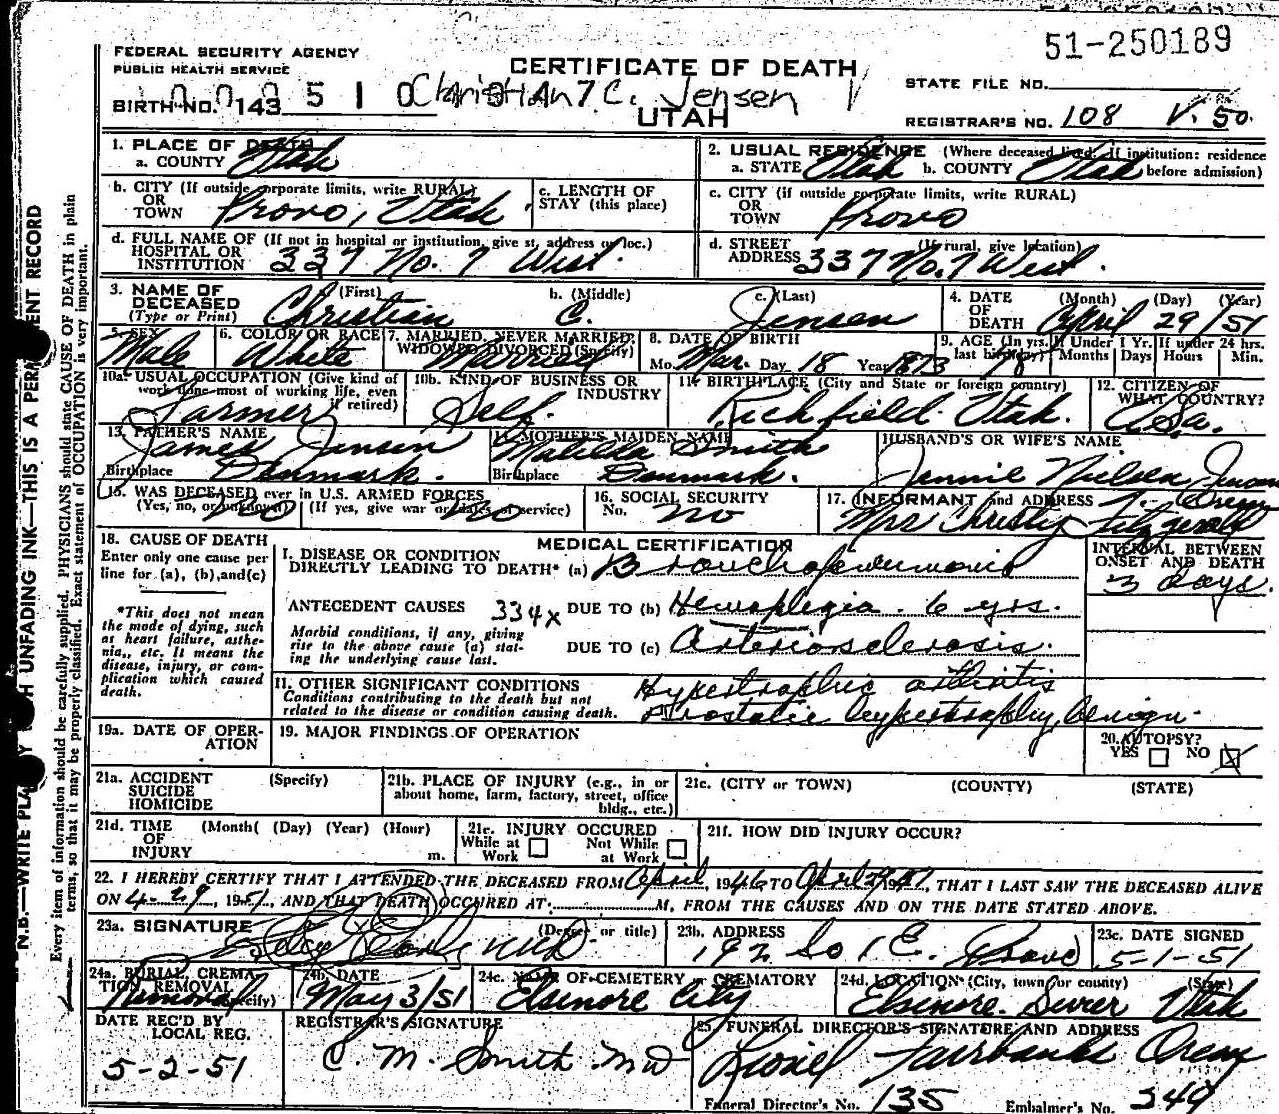 51-250189
FEDERAL SECURITY AGENCY
PUBLIC HEALTH SERVICE
CERTIFICATE OF DEATH
STATE FILE NO.
BIRTH NO. 143 9 5 1 0 Christian C. Jensen
UTAH
REGISTRAR'S NO. 108 V. 50
1. PLACE OF DEATH
a. COUNTY Utah
2. USUAL RESIDENCE (Where deceased lived. If institution: residence
a. STATE Utah b. COUNTY Utah before admission)
b. CITY (If outside corporate limits, write RURAL)
OR
TOWN Provo, Utah
c. LENGTH OF
STAY (this place)
c. CITY (if outside corporate limits, write RURAL)
OR
TOWN Provo
d. FULL NAME OF (If not in hospital or institution, give st. address or loc.)
HOSPITAL OR
INSTITUTION 337 No. 7 West.
d. STREET (If rural, give location)
ADDRESS 337 No. 7 West.
3. NAME OF
DECEASED
(Type or Print)
a. (First) Christian
b. (Middle) C.
c. (Last) Jensen
4. DATE
OF
DEATH
(Month) (Day) (Year)
April 29/51
5. SEX
Male
6. COLOR OR RACE
White
7. MARRIED, NEVER MARRIED,
WIDOWED, DIVORCED (Specify)
Married
8. DATE OF BIRTH
Mo. Mar. Day 18 Year 1873
9. AGE (In yrs. last birthday) 78
If Under 1 Yr. Months Days
If under 24 hrs. Hours Min.
10a. USUAL OCCUPATION (Give kind of
work done most of working life, even
if retired)
Farmer
10b. KIND OF BUSINESS OR
INDUSTRY
Self.
11. BIRTHPLACE (City and State or foreign country)
Richfield. Utah.
12. CITIZEN OF
WHAT COUNTRY?
U.S.a.
13. FATHER'S NAME
James Jensen
Birthplace Denmark.
MOTHER'S MAIDEN NAME
Matilda Smith
Birthplace Denmark.
HUSBAND'S OR WIFE'S NAME
Jennie Nielsen Jensen
15. WAS DECEASED ever in U.S. ARMED FORCES
(Yes, no, or unknown) No (If yes, give war or dates of service) No
16. SOCIAL SECURITY
No. no
17. INFORMANT and ADDRESS Orem
Mrs Christy Fitzgerald
18. CAUSE OF DEATH
Enter only one cause per
line for (a), (b), and (c)
*This does not mean
the mode of dying, such
as heart failure, asthe-
nia,, etc. It means the
disease, injury, or com-
plication which caused
death.
MEDICAL CERTIFICATION
I. DISEASE OR CONDITION
DIRECTLY LEADING TO DEATH* (a) Bronchopneumonia
INTERVAL BETWEEN
ONSET AND DEATH
3 days.
ANTECEDENT CAUSES 334x DUE TO (b) Hemiplegia. 6 yrs.
Morbid conditions, if any, giving
rise to the above cause (a) stat-
ing the underlying cause last.
DUE TO (c) Arteriosclerosis.
11. OTHER SIGNIFICANT CONDITIONS
Conditions contributing to the death but not
related to the disease or condition causing death.
Hypertrophic arthritis
Prostatic hypertrophy, benign.
19a. DATE OF OPER-
ATION
19. MAJOR FINDINGS OF OPERATION
20. AUTOPSY?
YES NO X
21a. ACCIDENT (Specify)
SUICIDE
HOMICIDE
21b. PLACE OF INJURY (e.g., in or
about home, farm, factory, street, office
bldg., etc.)
21c. (CITY or TOWN) (COUNTY) (STATE)
21d. TIME (Month( (Day) (Year) (Hour)
OF
INJURY m.
21e. INJURY OCCURED
While at Work Not While at Work
21f. HOW DID INJURY OCCUR?
22. I HEREBY CERTIFY THAT I ATTENDED THE DECEASED FROM April, 1946 TO April 29 1951, THAT I LAST SAW THE DECEASED ALIVE
ON 4-29, 1951, AND THAT DEATH OCCURED AT M, FROM THE CAUSES AND ON THE DATE STATED ABOVE.
23a. SIGNATURE (Degree or title)
MD
23b. ADDRESS
192 So 1 E. Provo
23c. DATE SIGNED
5-1-51
24a. BURIAL, CREMA
TION, REMOVAL
(Specify)
Removal
24b. DATE
May 3/51
24c. NAME OF CEMETERY or CREMATORY
Elsinore City
24d. LOCATION (City, town, or county) (State)
Elsinore. Sevier Utah
DATE REC'D BY
LOCAL REG.
5-2-51
REGISTRAR'S SIGNATURE
C. M. Smith MD
25. FUNERAL DIRECTOR'S SIGNATURE AND ADDRESS
Lionel Fairbanks Orem
Funeral Director's No. 135 Embalmer's No. 349
N.B.—WRITE PLAINLY WITH UNFADING INK—THIS IS A PERMANENT RECORD
Every item of information should be carefully supplied. PHYSICIANS should state CAUSE OF DEATH in plain
terms, so that it may be properly classified. Exact statement of OCCUPATION is very important.